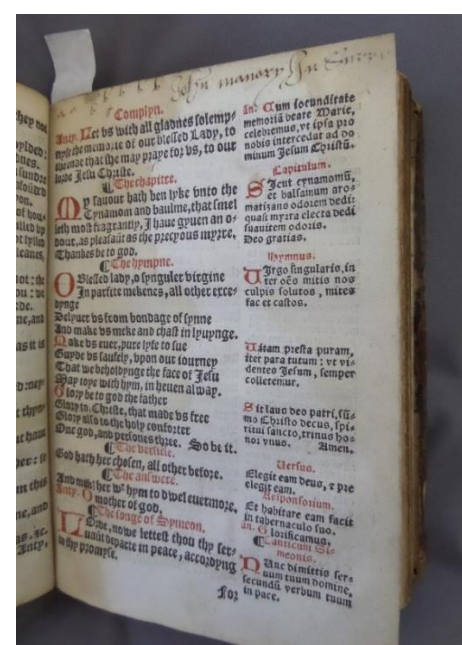 John manory
Complyn.
Anty. Let vs with all gladnes solemp-
nyse the memorie of our blessed Lady, to
thentent that she may praye for vs, to our
lorde Jesu Christe.
¶ The chapitre.
My sauour hath ben lyke vnto the
Cynamom and baulme, that smel
leth most fragrantly, I haue gyuen an o-
dour, as pleasaũt as the precyous myrre.
Thankes be to god.
¶ The hympne.
O Blessed lady, o synguler virgine
In parfite mekenes, all other exce-
dynge
Delyuer vs from bondage of synne
And make vs meke and chast in lyuynge.
Make vs euer, pure lyfe to sue
Guyde vs saufely, vpon our iourney
That we beholdynge the face of Jesu
May ioye with hym, in heuen alway.
Glory be to god the father
Glory to Christe, that made vs free
Glory also to the holy conforter
One god, and persones thre. So be it.
¶ The versicle.
God hath her chosen, all other before.
¶ The answere.
And made her wt hym to dwel euermore.
Anty. O mother of god.
¶ The songe of Symeon.
LOrde, nowe lettest thou thy ser-
uaũt departe in peace, accordyng
to thy promyse.
For
ãn. Cum iocunditate
memoriã beate Marie,
celebremus, vt ipsa pro
nobis intercedat ad do
minum Jesum Christũ.
Capitulum.
SIcut cynamomũ,
et balsamum aro-
matizans odorem dedit
quasi myrra electa dedi
suauitem odoris.
Deo gratias.
Hymnus.
VIrgo singularis, in
ter oẽs mitis nos
culpis solutos, mites
fac et castos.
Vitam presta puram,
iter para tutum: vt vi-
dentes Jesum, semper
colletemur.
Sit laus deo patri, sũ-
mo Christo decus, spi-
ritui sancto, trinus ho-
nor vnus. Amen.
Versus.
Elegit eam deus, et pre
elegit eam.
Responsorium.
Et habitare eam facit
in tabernaculo suo.
ãn. Glorificamus.
¶ Canticum Si-
meonis.
NUnc dimittis ser-
uum tuum domine,
secundũ verbum tuum
in pace.